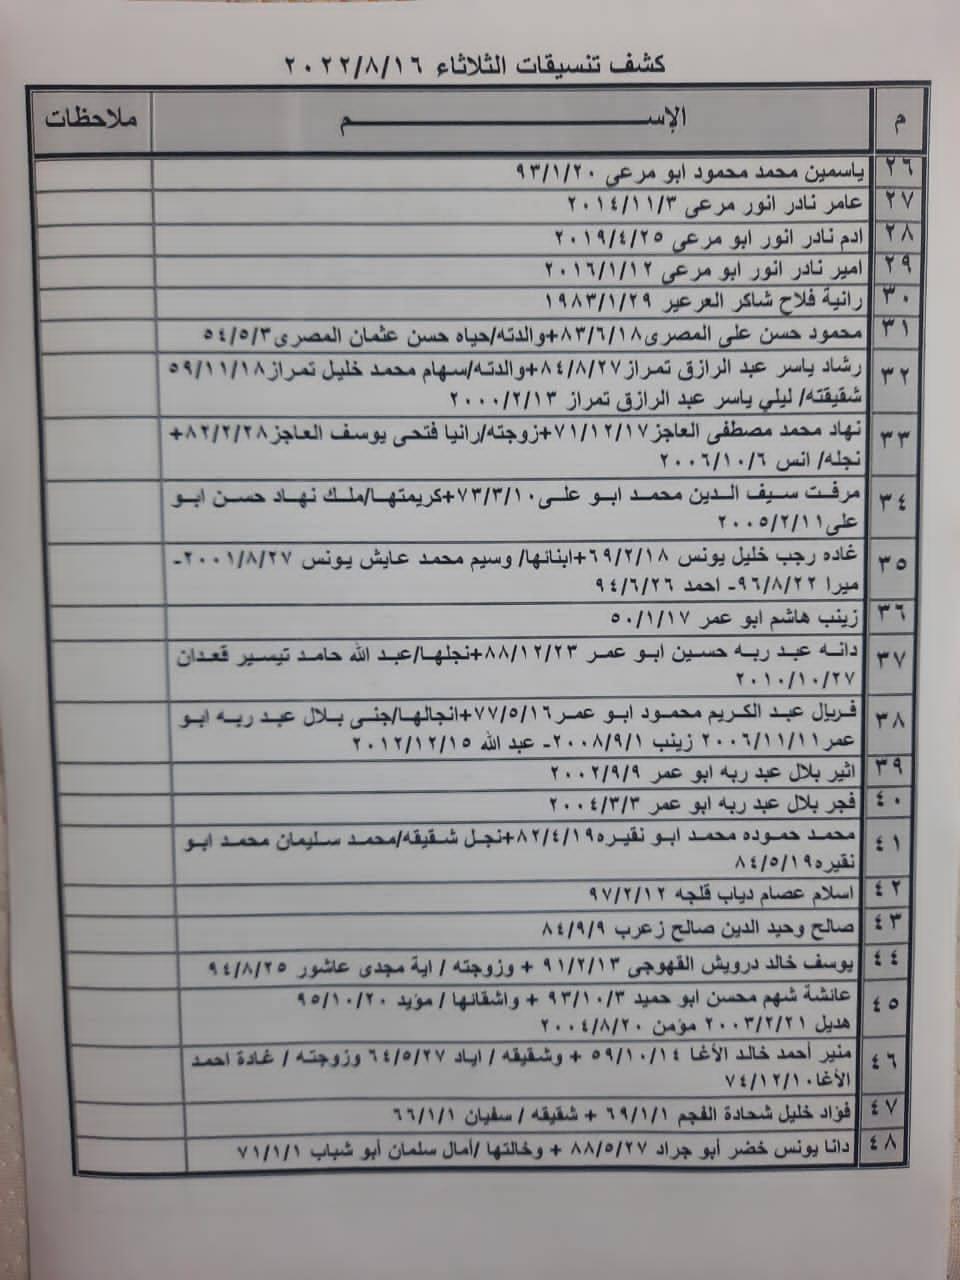 كشف تنسيقات الثلاثاء ٢٠٢٢/٨/١٦
م الإســـــــــم ملاحظات
٢٦ ياسمين محمد محمود ابو مرعى ٩٣/١/٢٠
٢٧ عامر نادر انور مرعى ٢٠١٤/١١/٣
٢٨ ادم نادر انور ابو مرعى ٢٠١٩/٤/٢٥
٢٩ امير نادر انور ابو مرعى ٢٠١٦/١/١٢
٣٠ رانية فلاح شاكر العرعير ١٩٨٣/١/٢٩
٣١ محمود حسن على المصرى٨٣/٦/١٨+والدته/حياه حسن عثمان المصرى٥٤/٥/٣
٣٢ رشاد ياسر عبد الرازق تمراز٨٤/٨/٢٧+والدته/سهام محمد خليل تمراز٥٩/١١/١٨
شقيقته/ ليلي ياسر عبد الرازق تمراز ٢٠٠٠/٢/١٣
٣٣ نهاد محمد مصطفى العاجز٧١/١٢/١٧+زوجته/رانيا فتحى يوسف العاجز٨٢/٢/٢٨+
نجله/ انس ٢٠٠٦/١٠/٦
٣٤ مرفت سيف الدين محمد ابو على٧٣/٣/١٠+كريمتها/ملك نهاد حسن ابو
على٢٠٠٥/٢/١١
٣٥ غاده رجب خليل يونس ٦٩/٢/١٨+ابنائها/ وسيم محمد عايش يونس ٢٠٠١/٨/٢٧-
ميرا ٩٦/٨/٢٢- احمد ٩٤/٦/٢٦
٣٦ زينب هاشم ابو عمر ٥٠/١/١٧
٣٧ دانه عبد ربه حسين ابو عمر ٨٨/١٢/٢٣+نجلها/عبد الله حامد تيسير قعدان
٢٠١٠/١٠/٢٧
٣٨ فريال عبد الكريم محمود ابو عمر٧٧/٥/١٦+انجالها/جنى بلال عبد ربه ابو
عمر٢٠٠٦/١١/١١ زينب ٢٠٠٨/٩/١- عبد الله ٢٠١٢/١٢/١٥
٣٩ اثير بلال عبد ربه ابو عمر ٢٠٠٢/٩/٩
٤٠ فجر بلال عبد ربه ابو عمر ٢٠٠٤/٣/٣
٤١ محمد حموده محمد ابو نقيره٨٢/٤/١٩+نجل شقيقه/محمد سليمان محمد ابو
نقيره٨٤/٥/١٩
٤٢ اسلام عصام دياب قلجه ٩٧/٢/١٢
٤٣ صالح وحيد الدين صالح زعرب ٨٤/٩/٩
٤٤ يوسف خالد درويش القهوجى ٩١/٢/١٣ + وزوجته / اية مجدى عاشور ٩٤/٨/٢٥
٤٥ عائشة شهم محسن ابو حميد ٩٣/١٠/٣ + واشقائها / مؤيد ٩٥/١٠/٢٠
هديل ٢٠٠٣/٢/٢١ مؤمن ٢٠٠٤/٨/٢٠
٤٦ منير أحمد خالد الأغا ٥٩/١٠/١٤ + وشقيقه / اياد ٦٤/٥/٢٧ وزوجته / غادة احمد
الأغا٧٤/١٢/١٠
٤٧ فؤاد خليل شحادة الفجم ٦٩/١/١ + شقيقه / سفيان ٦٦/١/١
٤٨ دانا يونس خضر أبو جراد ٨٨/٥/٢٧ + وخالتها /أمال سلمان أبو شباب ٧١/١/١